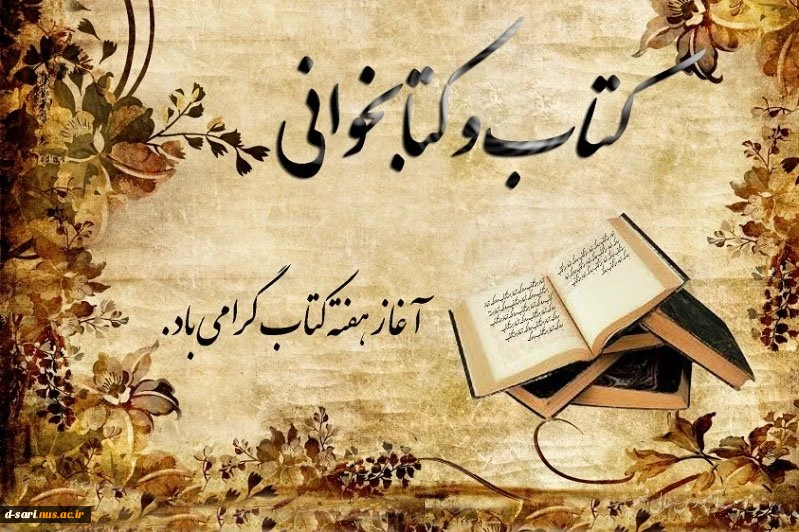 کتاب و کتابخوانی
آغاز هفته کتاب گرامی باد.
d-sari.nus.ac.ir